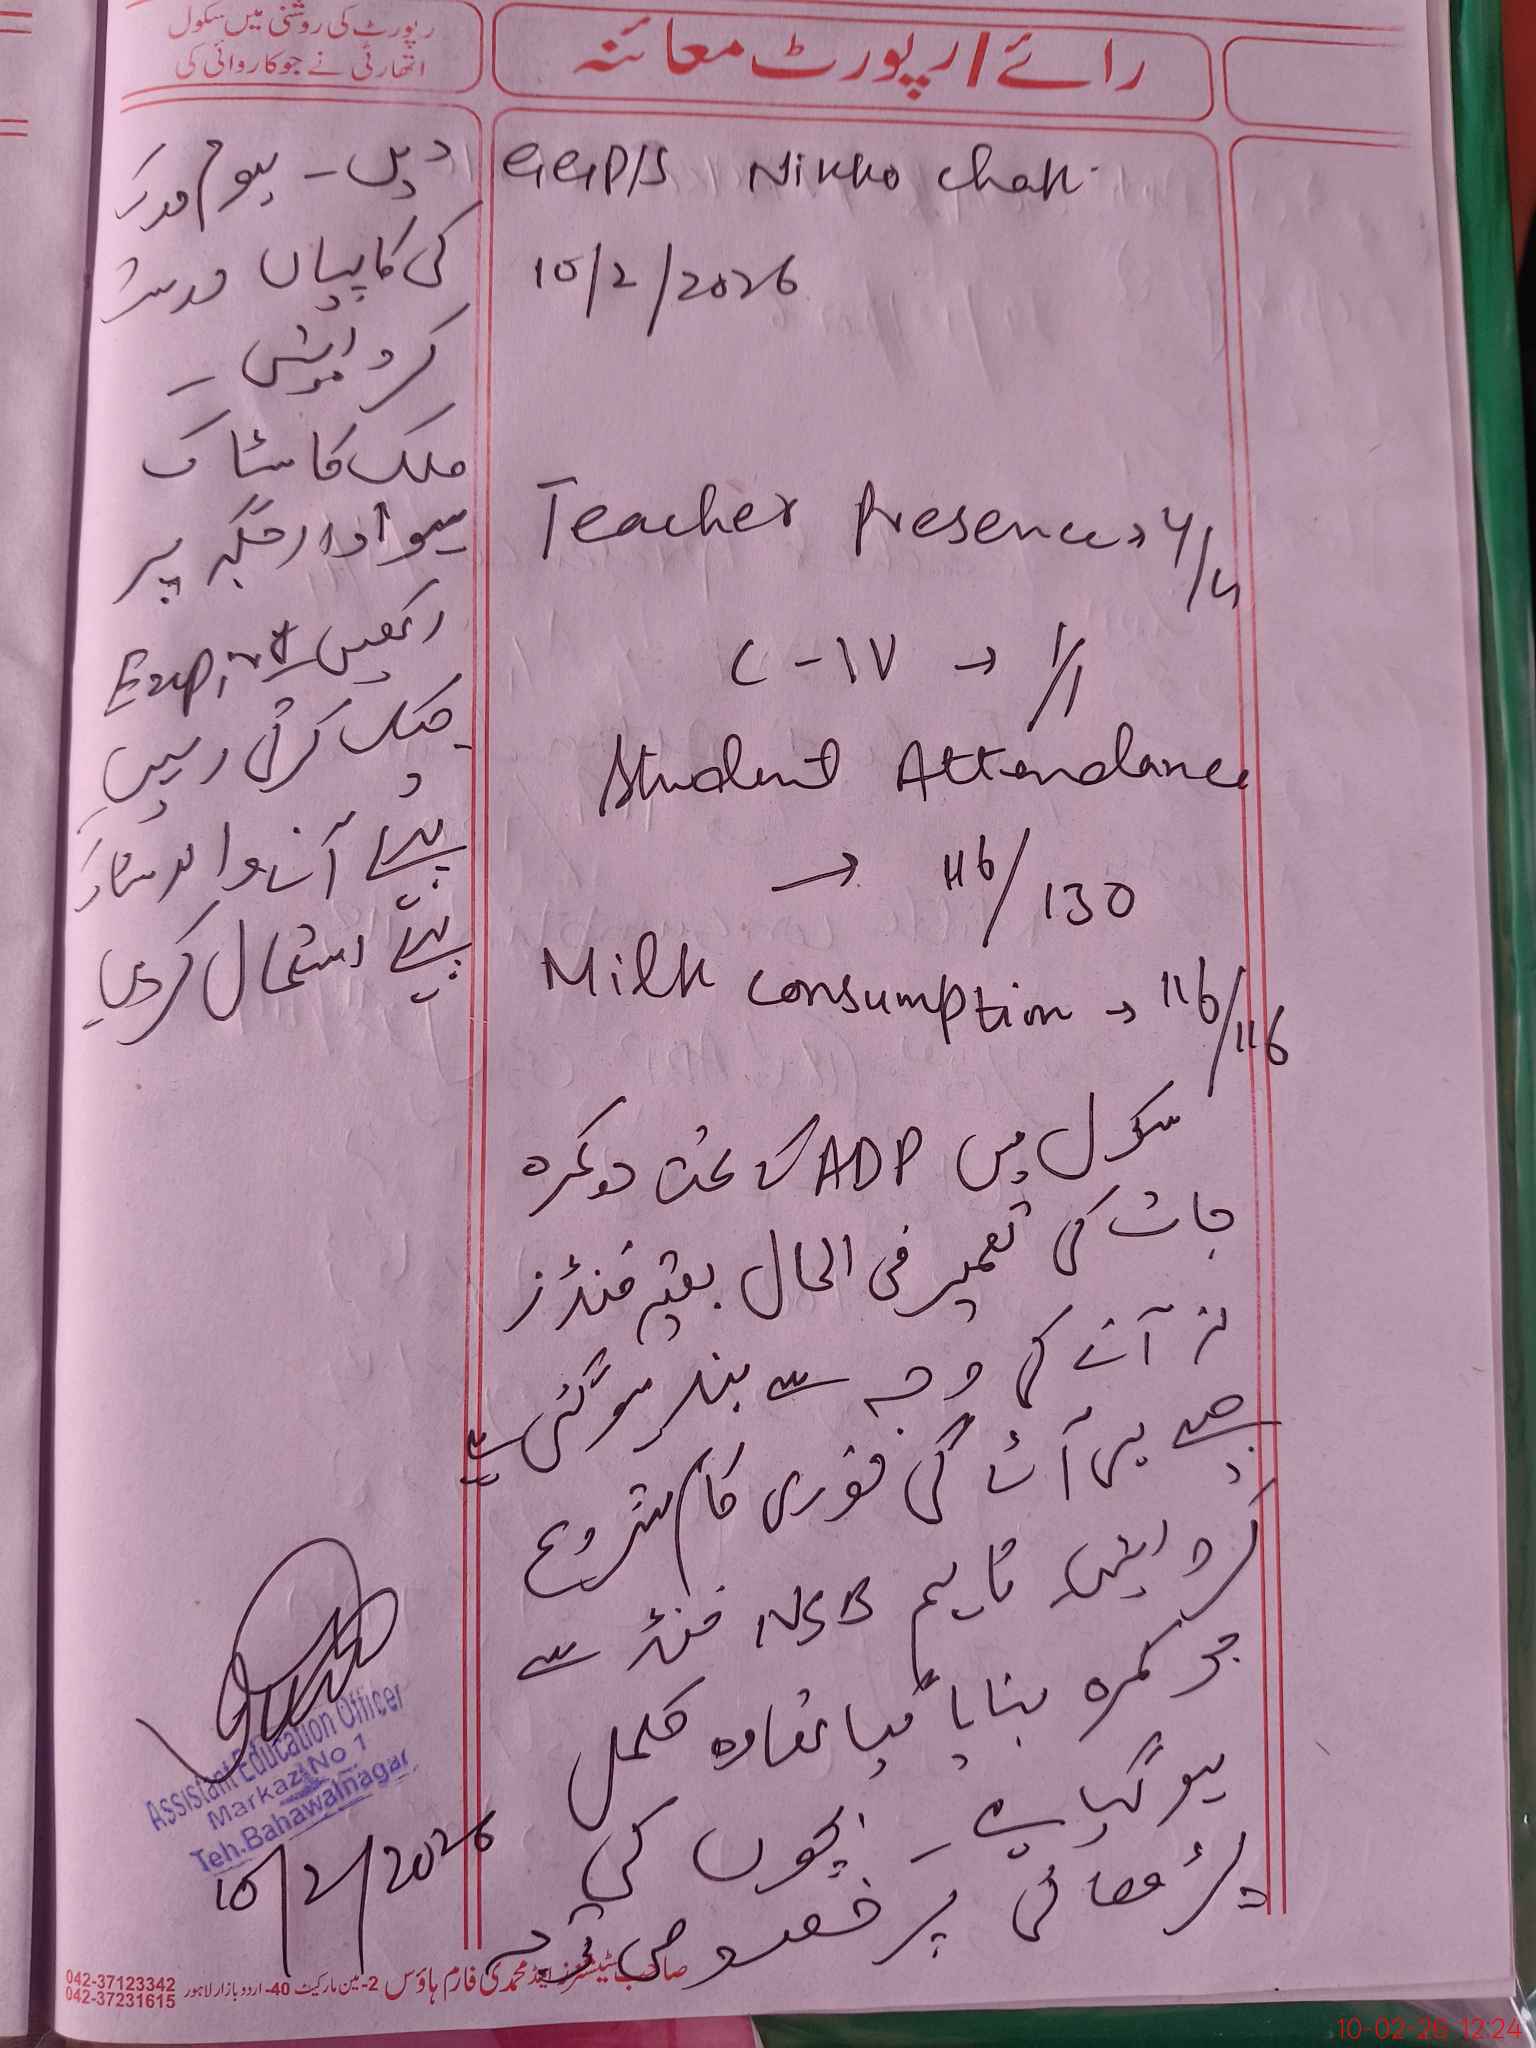 رائے / رپورٹ معائنہ
رپورٹ کی روشنی میں سکول
اتھارٹی نے جو کاروائی کی
GGP/S Nikko Chak
10/2/2026
Teacher Presence → 4/4
C-IV → 1/1
Student Attendance
→ 116/130
Milk consumption → 116/116
سکول میں ADP کے تحت دو کمرہ
جات کی تعمیر فی الحال بقیہ فنڈز
نہ آنے کی وجہ سے بند ہو گئی ہے
جیسے ہی آئے گی فوری کام شروع
کروائیں۔ تاہم NSB فنڈ سے
جو کمرہ بنایا گیا تھا وہ مکمل
ہو گیا ہے۔ بچوں کی
پڑھائی پر خصوصی توجہ
دیں۔ ہوم ورک
کی کاپیاں درست
کروائیں۔
ملک کا سٹاک
ہوادار جگہ پر
رکھیں۔ Expiry
چیک کرتی رہیں
پہلے آنے والا سٹاک
پہلے استعمال کریں
Assistant Education Officer
Markaz No 1
Teh. Bahawalnagar
10/2/2026
صاحب سٹیشنرز اینڈ محمدی فارم ہاؤس 2-مین مارکیٹ 40-اردو بازار لاہور
042-37123342
042-37231615
10-02-26 12:24